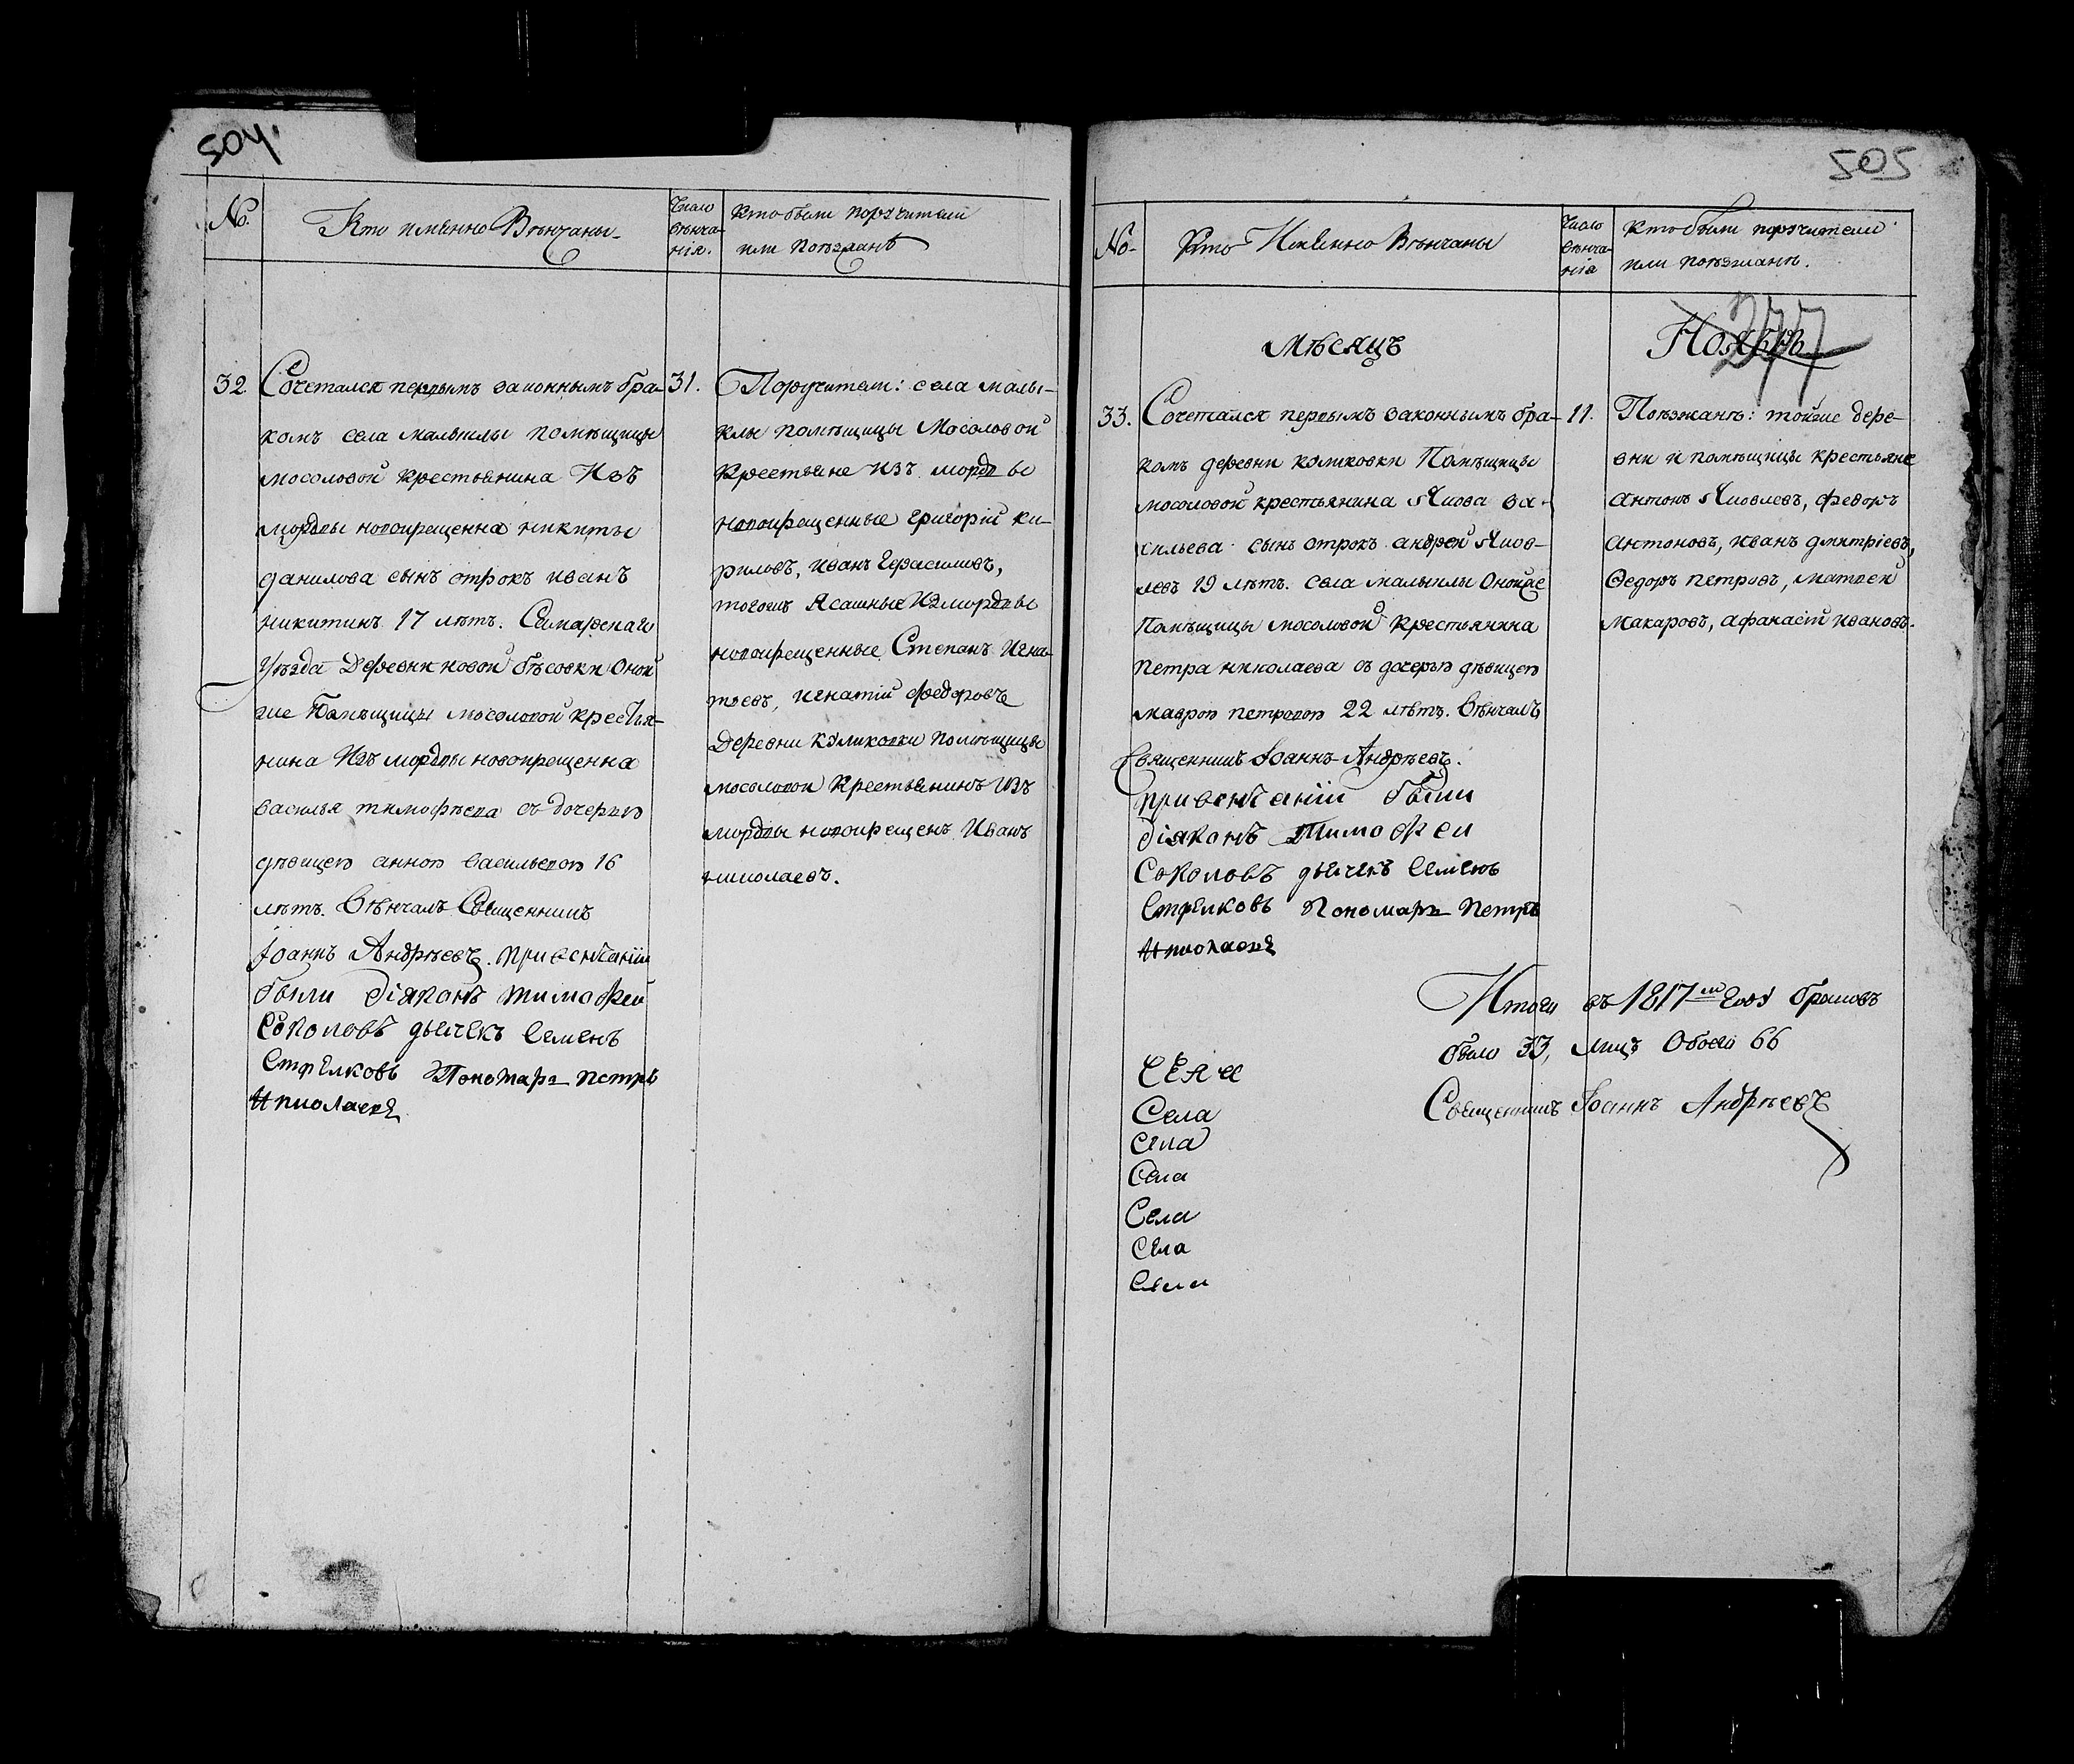 504
№
Кто имѣнно Вѣнчаны
Число
вѣнча-
нія.
кто были поручители
или поѣзжанѣ
32.
Сочетался первымъ законнымъ бра-
комъ села малыклы помѣщицы
мосоловой крестьянина Изъ
мордвы новокрещенна никиты
данилова сынъ отрокъ иванъ
никитинъ 17 лѣтъ. Самарскаго
уѣзда Деревни новой бѣсовки Оной
же Помѣщицы мосоловой крестья-
нина Изъ мордвы новокрещенна
василья тимофѣева съ дочерью
дѣвицею анною васильевою 16
лѣтъ. Вѣнчалъ Священникъ
Іоаннъ Андрѣевъ. при венчаніи
были діяконъ тимофей
Соколовъ дьячекъ Семенъ
Стрелковъ Пономарь Петръ
Николаевъ
31.
Поручители: села малы-
клы помѣщицы Мосоловой
крестьяне изъ мордвы
новокрещенные григорій ки-
риловъ, иванъ Герасимовъ,
тогожъ Ясашные Изъ мордвы
новокрещенные Степанъ Игна-
тьевъ, игнатій федоровъ
Деревни куликовки помѣщицы
мосоловой крестьянинъ изъ
мордвы новокрещенъ Иванъ
николаевъ.
505
№
Кто Имѣнно Вѣнчаны
Число
вѣнча-
нія
кто были поручители
или поѣзжанѣ.
277
мѣсяцъ
Ноябрь
33.
Сочетался первымъ законнымъ бра-
комъ деревни куликовки Помѣщицы
мосоловой крестьянина Якова ва-
сильева сынъ отрокъ андрей Яков-
левъ 19 лѣтъ. села малыклы Онойже
Помѣщицы мосоловой крестьянина
петра николаева съ дочерью дѣвицею
маврою петровою 22 лѣтъ. Вѣнчалъ
Священникъ Іоаннъ Андрѣевъ.
при венчаніи были
діяконъ Тимофей
Соколовъ дьячекъ Семенъ
Стрелковъ Пономарь Петръ
Николаевъ
11.
Поѣзжанѣ: тойже дере-
вни и помѣщицы крестьяне
антонъ Яковлевъ, федоръ
антоновъ, иванъ дмитріевъ,
Ѳедоръ петровъ, матвей
макаровъ, афанасій ивановъ.
Итого въ 1817м году браковъ
было 33, лицъ Обоего 66
Священникъ Іоаннъ Андрѣевъ
Села
Села
Села
Села
Села
Села